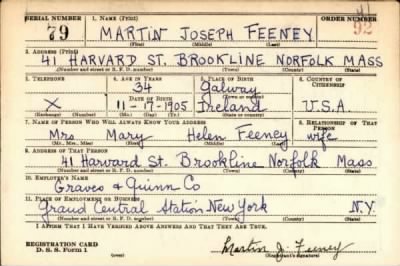 SERIAL NUMBER 1. NAME (Print) ORDER NUMBER
79 MARTIN JOSEPH FEENEY 92
(First) (Middle) (Last)
2. ADDRESS (Print)
41 HARVARD ST. BROOKLINE NORFOLK MASS
(Number and street or R. F. D. number) (Town) (County) (State)
3. TELEPHONE 4. AGE IN YEARS 5. PLACE OF BIRTH 6. COUNTRY OF CITIZENSHIP
34 Galway
DATE OF BIRTH (Town or county)
X 11-17-1905 Ireland U.S.A.
(Exchange) (Number) (Mo.) (Day) (Yr.) (State or country)
7. NAME OF PERSON WHO WILL ALWAYS KNOW YOUR ADDRESS 8. RELATIONSHIP OF THAT PERSON
Mrs Mary Helen Feeney wife
(Mr., Mrs., Miss) (First) (Middle) (Last)
9. ADDRESS OF THAT PERSON
41 Harvard St. Brookline Norfolk Mass
(Number and street or R. F. D. number) (Town) (County) (State)
10. EMPLOYER'S NAME
Graves & Quinn Co
11. PLACE OF EMPLOYMENT OR BUSINESS
Grand Central Station New York N.Y.
(Number and street or R. F. D. number) (Town) (County) (State)
I AFFIRM THAT I HAVE VERIFIED ABOVE ANSWERS AND THAT THEY ARE TRUE.
REGISTRATION CARD
D. S. S. Form 1 Martin J. Feeney
(Registrant's signature)